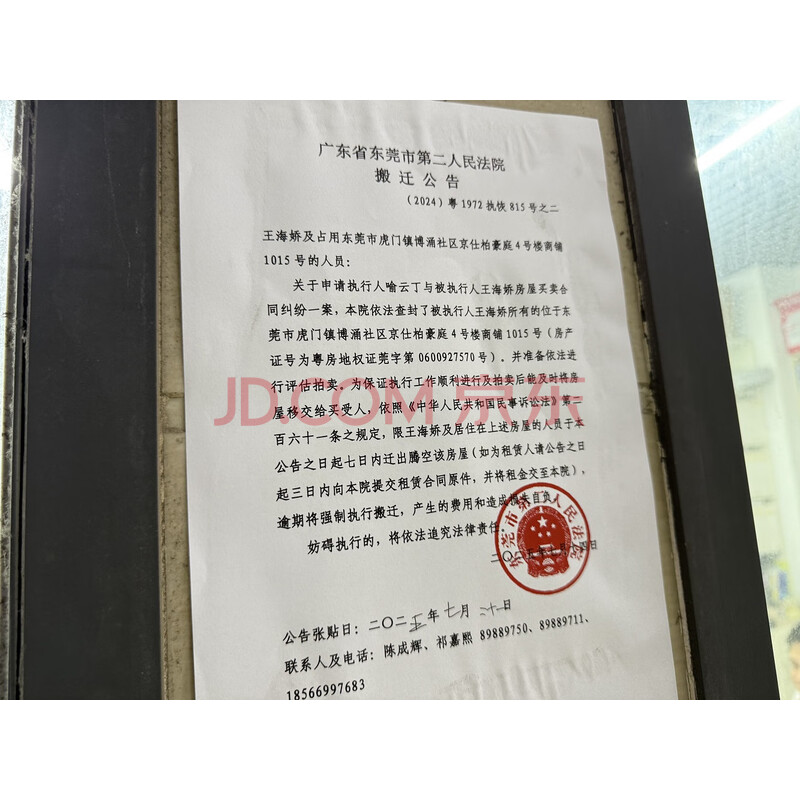 广东省东莞市第二人民法院
搬迁公告
（2024）粤1972执恢815号之二
王海娇及占用东莞市虎门镇博涌社区京仕柏豪庭4号楼商铺
1015号的人员：
关于申请执行人喻云丁与被执行人王海娇房屋买卖合
同纠纷一案，本院依法查封了被执行人王海娇所有的位于东
莞市虎门镇博涌社区京仕柏豪庭4号楼商铺1015号（房产
证号为粤房地权证莞字第0600927570号）。并准备依法进
行评估拍卖。为保证执行工作顺利进行及拍卖后能及时将房
屋移交给买受人，依照《中华人民共和国民事诉讼法》第二
百六十一条之规定，限王海娇及居住在上述房屋的人员于本
公告之日起七日内迁出腾空该房屋（如为租赁人请公告之日
起三日内向本院提交租赁合同原件，并将租金交至本院），
逾期将强制执行搬迁，产生的费用和造成损失自负。
妨碍执行的，将依法追究法律责任。
二〇二五年七月 日
东莞市第二人民法院
公告张贴日：二〇二五年七月二十一日
联系人及电话：陈成辉、祁嘉熙 89889750、89889711、
18566997683
JD.COM 京东